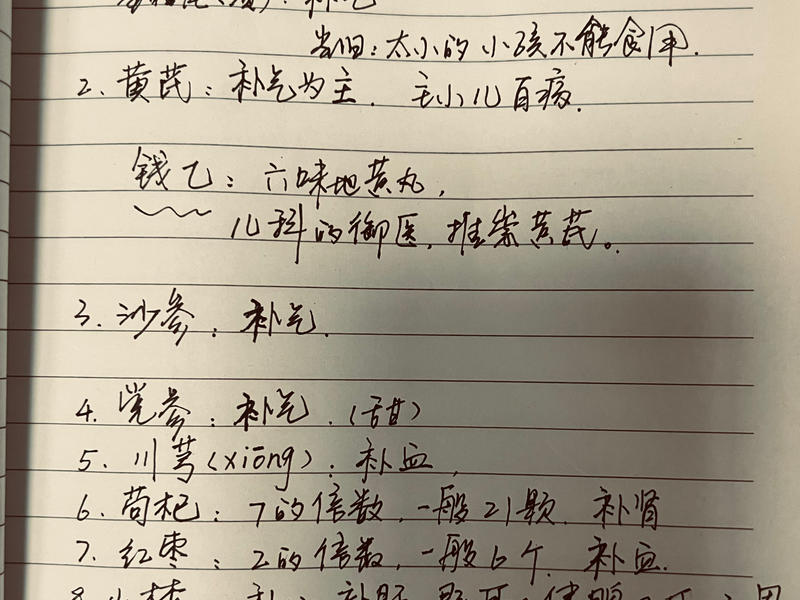 补气
当归：太小的小孩不能食用.
2. 黄芪：补气为主. 主小儿百病.
钱乙：六味地黄丸，
儿科的御医，推崇黄芪。
3. 沙参：补气.
4. 党参：补气.（甜）
5. 川芎(xiōng)：补血，
6. 苟杞：7的倍数，一般21颗. 补肾
7. 红枣：2的倍数，一般6个. 补血.